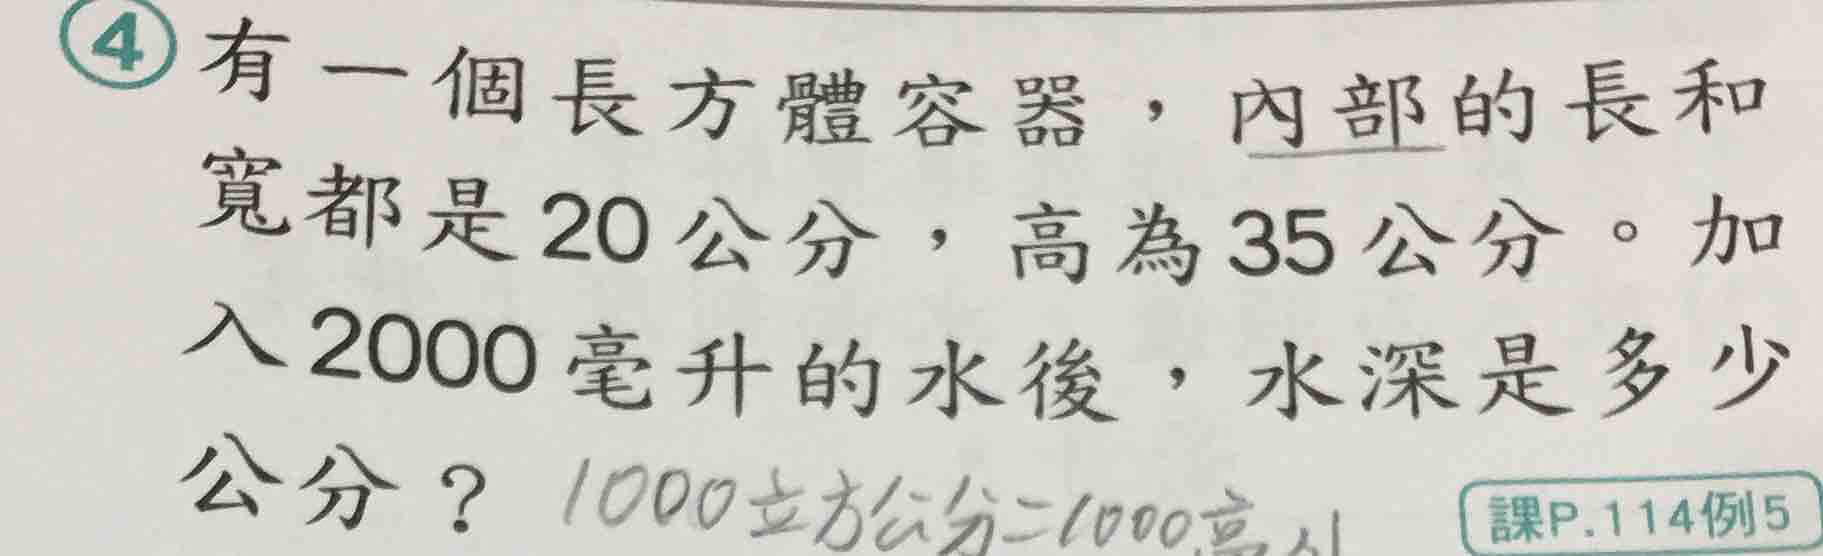 ④有一個長方體容器，內部的長和
寬都是20公分，高為35公分。加
入2000毫升的水後，水深是多少
公分？ 1000立方公分=1000毫升
課P.114例5